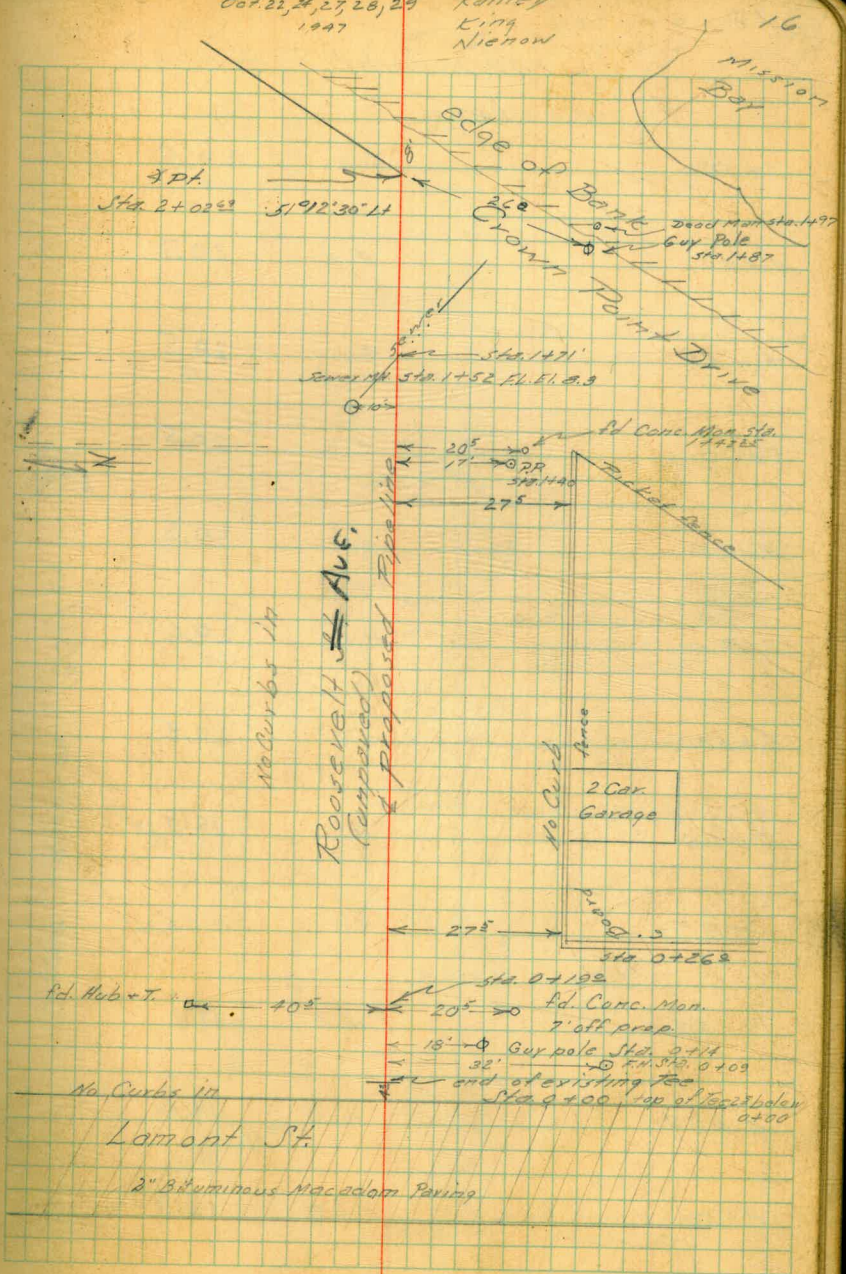 Oct. 22, 24, 27, 28, 29
1947
King
Nienow
16
Mission
Bay
edge of Bank
8'
∡ Pt.
Sta. 2+02⁶⁹ 51°12'30" Lt
26⁰
Dead Man Sta. 1+97
Guy Pole
Sta. 1+87
Crown Point Drive
Sewer
Sta. 1+71
Sewer MH Sta. 1+52 F.L. El. 8.3
10'
fd Conc. Mon. Sta.
20⁵
17'
P.P.
Sta. 1+40
27⁵
Picket fence
No Curbs in
Roosevelt St Ave.
(unpaved)
℄ proposed Pipeline
No Curb
fence
2 Car
Garage
Board
27⁵
Sta. 0+26⁸
Sta. 0+19²
fd. Hub & T.
40⁵
20⁵
fd. Conc. Mon.
7' off prop.
18'
Guy pole Sta. 0+14
32'
F.H. Sta. 0+09
end of existing Tee
Sta 0+00 top of Tee 2⁸ below
0+00
No Curbs in
Lamont St.
2" Bituminous Macadam Paving